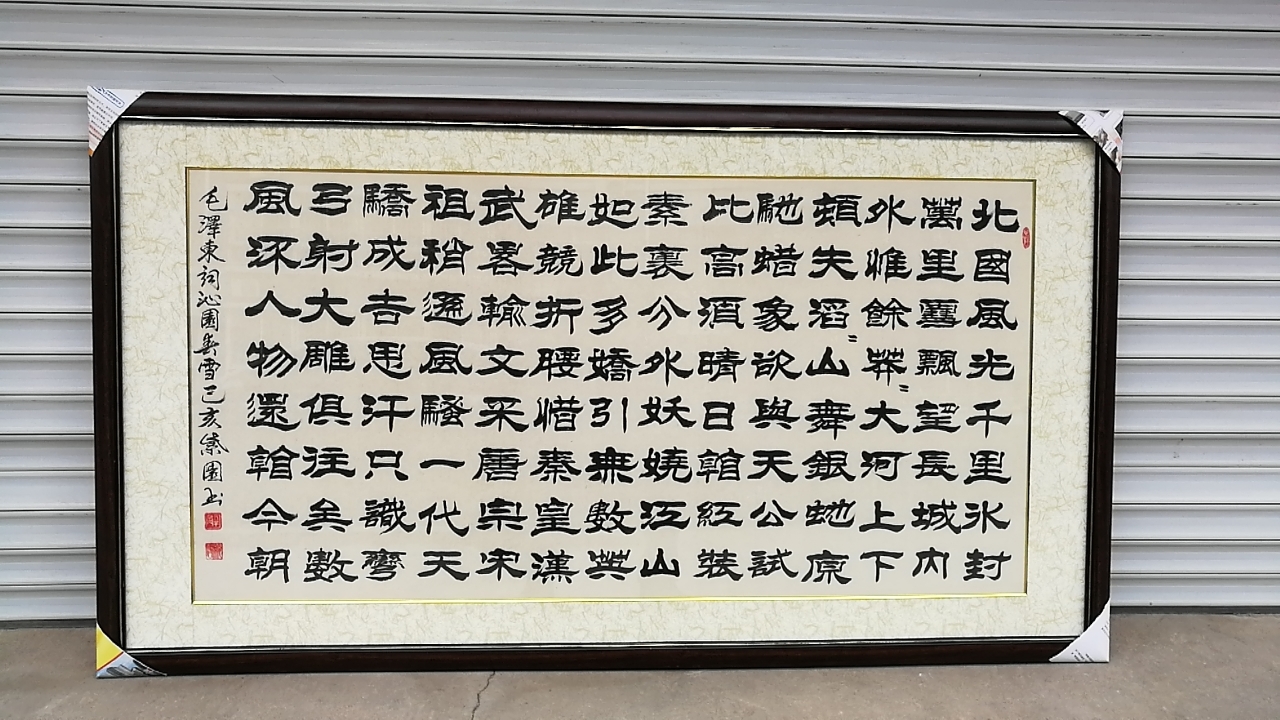 北國風光千里冰封
萬里雪飄望長城內
外惟餘莽〻大河上下
頓失滔〻山舞銀蛇原
馳蜡象欲與天公試
比高須晴日看紅裝
素裹分外妖嬈江山
如此多嬌引無數英
雄競折腰惜秦皇漢
武畧輸文采唐宗宋
祖稍遜風騷一代天
驕成吉思汗只識彎
弓射大雕俱往矣數
風流人物還看今朝
毛澤東詞沁園春雪己亥園書